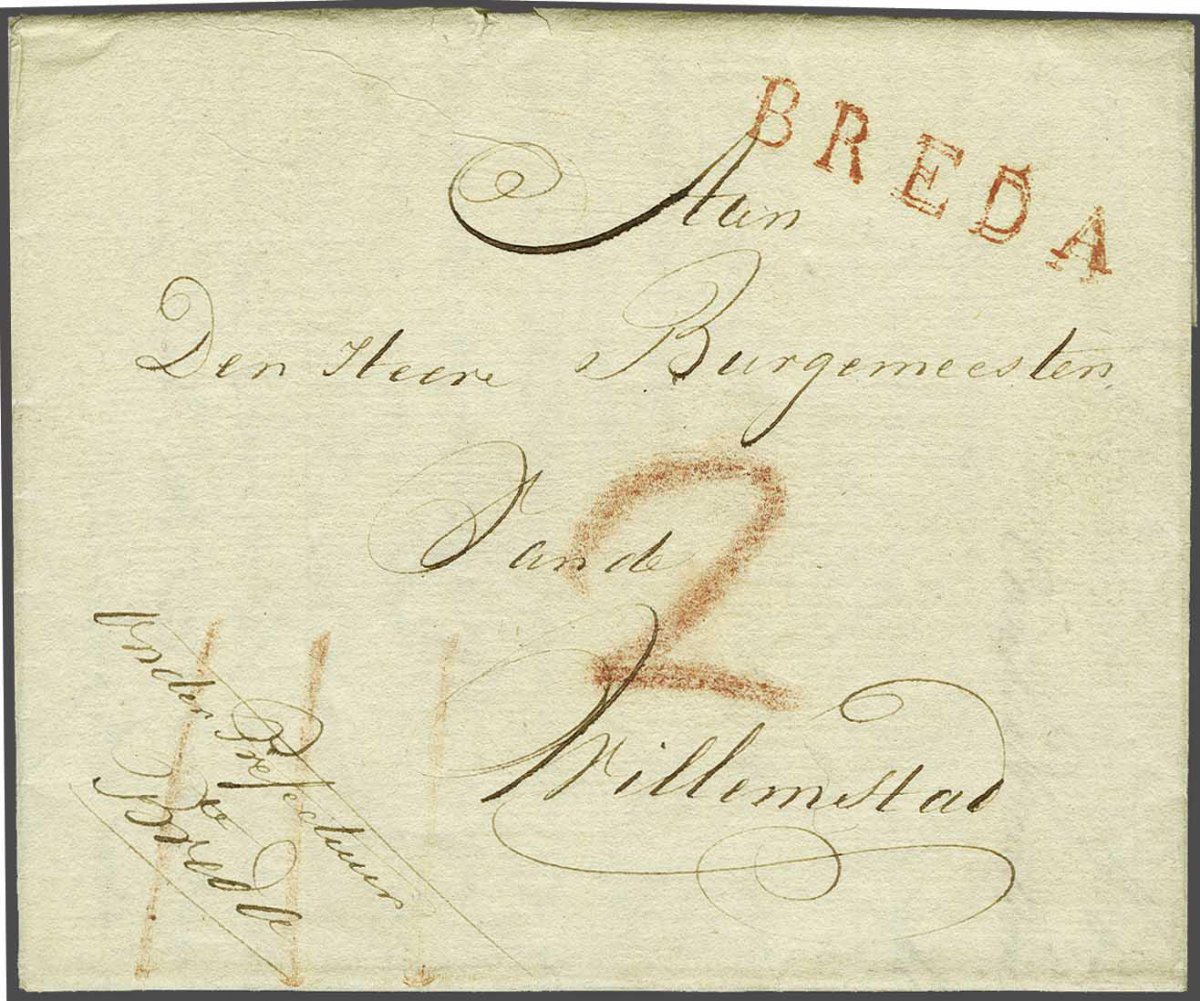 BREDA
Aan
Den Heere Burgemeester
Van de
2
Willemstad
Onder Prefectuur
te
Breda